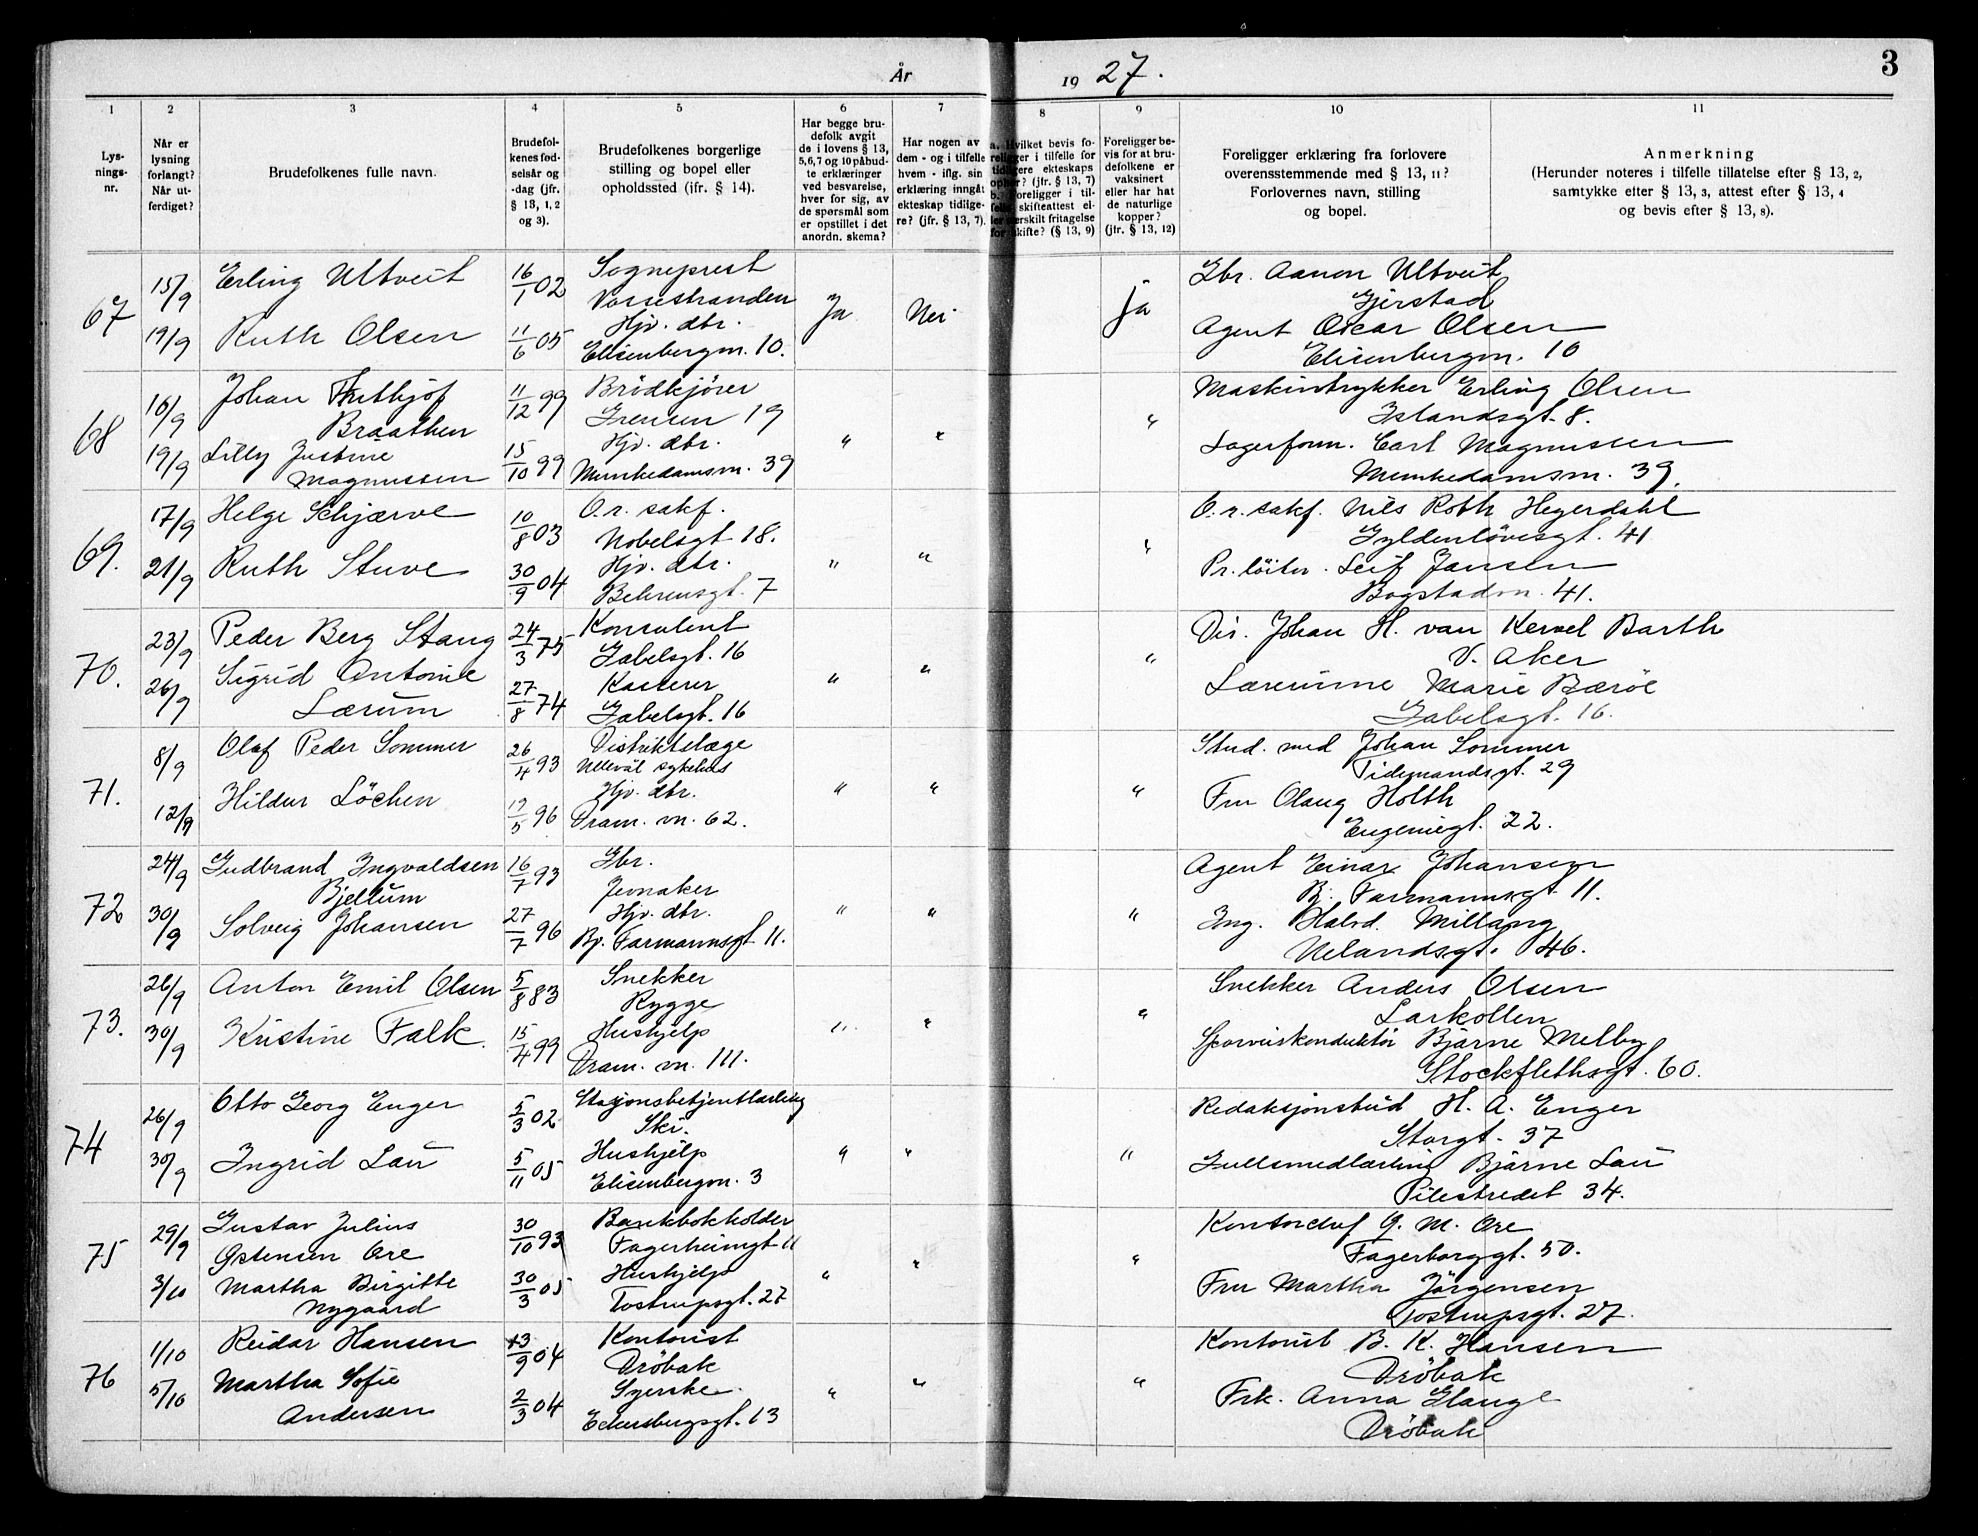 År 1927.
3
1
2
3
4
5
6
7
8
9
10
11
Lys-
nings-
nr.
Når er
lysning
forlangt?
Når ut-
ferdiget?
Brudefolkenes fulle navn.
Brudefol-
kenes fød-
selsår og
-dag (jfr.
§ 13, 1, 2
og 3).
Brudefolkenes borgerlige
stilling og bopel eller
opholdssted (ifr. § 14).
Har begge bru-
defolk avgit
de i lovens § 13,
5,6,7 og 10 påbud-
te erklæringer
ved besvarelse,
hver for sig, av
de spørsmål som
er opstillet i det
anordn. skema?
Har nogen av
dem - og i tilfelle
hvem - iflg. sin
erklæring inngåt
ekteskap tidlige-
re? (jfr. § 13, 7).
a. Hvilket bevis fo-
religger i tilfelle for
tidligere ekteskaps
ophør? (jfr. § 13, 7)
b. Foreligger i til-
felle skifteattest el-
ler særskilt fritagelse
for skifte? (§ 13, 9)
Foreligger be-
vis for at bru-
defolkene er
vaksinert
eller har hat
de naturlige
kopper?
(jfr. § 13, 12)
Foreligger erklæring fra forlovere
overensstemmende med § 13, 11?
Forlovernes navn, stilling
og bopel.
Anmerkning
(Herunder noteres i tilfelle tillatelse efter § 13, 2,
samtykke efter § 13, 3, attest efter § 13, 4
og bevis efter § 13, 8).
67
15/9 Erling Ultveit 16/1 02 Sogneprest
Vossestranden
Ja Nei ja
Gbr. Aanon Ultveit
Gjerstad
19/9 Ruth Olsen 11/6 05 Hjv. dtr.
Elisenbergvn. 10.
Agent Oscar Olsen
Elisenbergvn. 10
68
16/9 Johan Frithjof
Braathen
11/12 99 Brödkjörer
Grensen 19
" " "
Maskintrykker Erling Olsen
Islandsgt. 8.
19/9 Lilly Justine
Magnussen
15/10 99 Hjv. dtr.
Munkedamsvn. 39
Lagerform. Carl Magnussen
Munkedamsvn. 39.
69.
17/9 Helge Schjærve 10/8 03 O.r. sakf.
Nobelsgt 18.
" " "
O.r. sakf. Nils Roth Hegerdahl
Gyldenlövesgt. 41
21/9 Ruth Stuve 30/9 04 Hjv. dtr.
Behrensgt. 7
Pr. löitn. Leif Jansen
Bogstadvn. 41.
70.
23/9 Peder Berg Stang 24/3 75 Konsulent
Gabelsgt. 16
" " "
Dis. Johan H. van Kervel Barth
V. Aker
26/9 Sigrid Antonie
Lærum
27/8 74 Kasserer
Gabelsgt. 16
Lærerinne Marie Bæröe
Gabelsgt. 16.
71.
8/9 Olaf Peder Sommer 26/4 93 Distriktslæge
Ullevål sykehus
" " "
Stud. med Johan Sommer
Tidemandsgt. 29
12/9 Hildur Löchen 19/5 96 Hjv. dtr.
Dram. vn. 62.
Fru Olaug Holth
Eugeniegt. 22.
72
24/9 Gudbrand Ingvaldsen
Bjellum
16/7 93 Gbr.
Jevnaker
" " "
Agent Einar Johansen
Bj. Farmannsgt 11.
30/9 Solveig Johansen 27/7 96 Hjv. dtr.
Bj. Farmannsgt 11.
Ing. Halvd. Millang
Uelandsgt. 46.
73.
26/9 Anton Emil Olsen 5/8 83 Snekker
Rygge
" " "
Snekker Anders Olsen
Larkollen
30/9 Kristine Falk. 15/4 99 Hushjelp
Dram. vn. 111.
Sporveiskonduktör Bjarne Melby
Stockflethsgt. 60.
74
26/9 Otto Georg Enger 5/3 02 Stasjonsbetjentlærling
Ski.
" " "
Redaksjonsbud H. A. Enger
Storgt. 37
30/9 Ingrid Lau 5/11 05 Hushjelp
Elisenbergvn. 3
Gullsmedlærling Bjarne Lau
Pilestredet 34.
75
29/9 Gustav Julius
Östensen Ore
30/10 93 Bankbokholder
Fagerheimgt 11
" " "
Kontorchef G. M. Ore
Fagerborggt. 50.
3/10 Martha Birgitte
Nygaard
30/3 05 Hushjelp
Tostrupsgt. 27
Fru Martha Jörgensen
Tostrupsgt. 27.
76
1/10 Reidar Hansen 13/9 04 Kontorist
Dröbak
" " "
Kontorist B. K. Hansen
Dröbak
5/10 Martha Sofie
Andersen
2/3 04 Syerske
Eckersbergsgt. 13
Frk. Anna Hauge
Dröbak